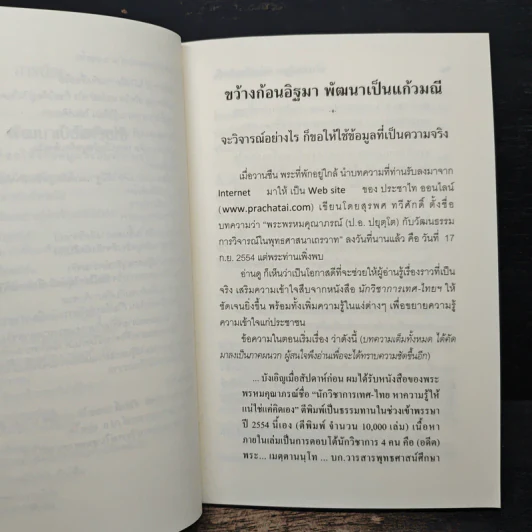 ขว้างก้อนอิฐมา พัฒนาเป็นแก้วมณี
จะวิจารณ์อย่างไร ก็ขอให้ใช้ข้อมูลที่เป็นความจริง
เมื่อวานซืน พระที่พักอยู่ใกล้ นำบทความที่ท่านรับลงมาจาก
Internet มาให้ เป็น Web site ของ ประชาไท ออนไลน์
(www.prachatai.com) เขียนโดยสุรพศ ทวีศักดิ์ ตั้งชื่อ
บทความว่า “พระพรหมคุณาภรณ์ (ป.อ. ปยุตฺโต) กับวัฒนธรรม
การวิจารณ์ในพุทธศาสนาเถรวาท” ลงวันที่นานแล้ว คือ วันที่ 17
ก.ย. 2554 แต่พระท่านเพิ่งพบ
อ่านดู ก็เห็นว่าเป็นโอกาสดีที่จะช่วยให้ผู้อ่านรู้เรื่องราวที่เป็น
จริง เสริมความเข้าใจสืบจากหนังสือ นักวิชาการเทศ-ไทยฯ ให้
ชัดเจนยิ่งขึ้น พร้อมทั้งเพิ่มความรู้ในแง่ต่างๆ เพื่อขยายความรู้
ความเข้าใจแก่ประชาชน
ข้อความในตอนเริ่มเรื่อง ว่าดังนี้ (บทความเต็มทั้งหมด ได้คัด
มาลงเป็นภาคผนวก ผู้สนใจพึงอ่านเพื่อจะได้ทราบความชัดขึ้นอีก)
... บังเอิญเมื่อสัปดาห์ก่อน ผมได้รับหนังสือของพระ
พรหมคุณาภรณ์ชื่อ “นักวิชาการเทศ-ไทย หาความรู้ให้
แน่ใช่แค่คิดเอง” ตีพิมพ์เป็นธรรมทานในช่วงเข้าพรรษา
ปี 2554 นี้เอง (ตีพิมพ์ จำนวน 10,000 เล่ม) เนื้อหา
ภายในเล่มเป็นการตอบโต้นักวิชาการ 4 คน คือ (อดีต)
พระ... เมตฺตานนฺโท ... บก.วารสารพุทธศาสน์ศึกษา